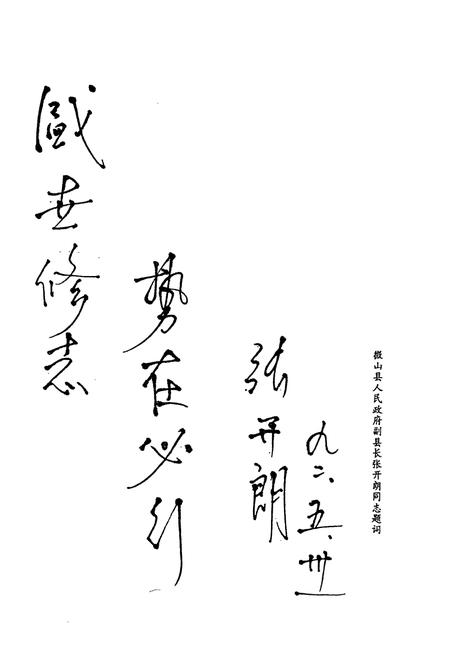 盛世修志
势在必行
张开朗
九二、五、卅一
微山县人民政府副县长张开朗同志题词